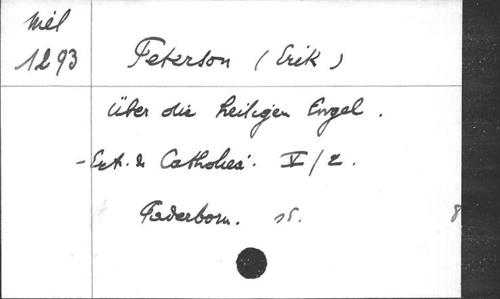 Mél
1293
Peterson (Erik)
Über die heiligen Engel.
- Ext. de Catholica. V/2.
Paderborn. 15. 8